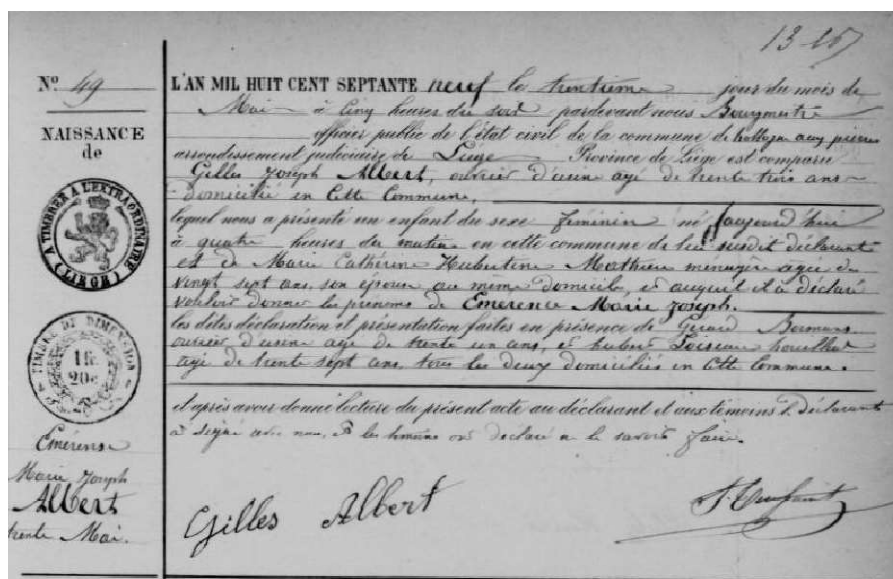 13
Nº 49
NAISSANCE
de
A TIMBRER A L'EXTRAORDINAIRE
(LIÈGE)
TIMBRE DE DIMENSION
1 fr
20c
Emérence
Marie Joseph
Albert
trente Mai.
L'AN MIL HUIT CENT SEPTANTE neuf le trentième jour du mois de
Mai à cinq heures du soir pardevant nous Bourgmestre
officier public de l'état civil de la commune de hollogne aux pierres
arrondissement judiciaire de Liége Province de Liége est comparu
Gilles Joseph Albert, ouvrier d'usine agé de trente trois ans
domicilié en Cette Commune,
lequel nous a présenté un enfant du sexe féminin né aujourd'hui
à quatre heures du matin en cette commune de lui susdit déclarant
et de Marie Cathérine Hubertine Mathieu ménagère agée de
vingt sept ans, son épouse au même domicile et auquel il a déclaré
vouloir donner les prénoms de Emérence Marie Joseph.
les dites déclaration et présentation faites en présence de Gérard Bormans
ouvrier d'usine agé de trente un ans, et hubert Loiseau houilleur
agé de trente sept ans, tous les deux domiciliés en Cette Commune.
et après avoir donné lecture du présent acte au déclarant et aux témoins le déclarant
a signé avec nous, et les témoins ont déclaré ne le savoir faire.
Gilles Albert